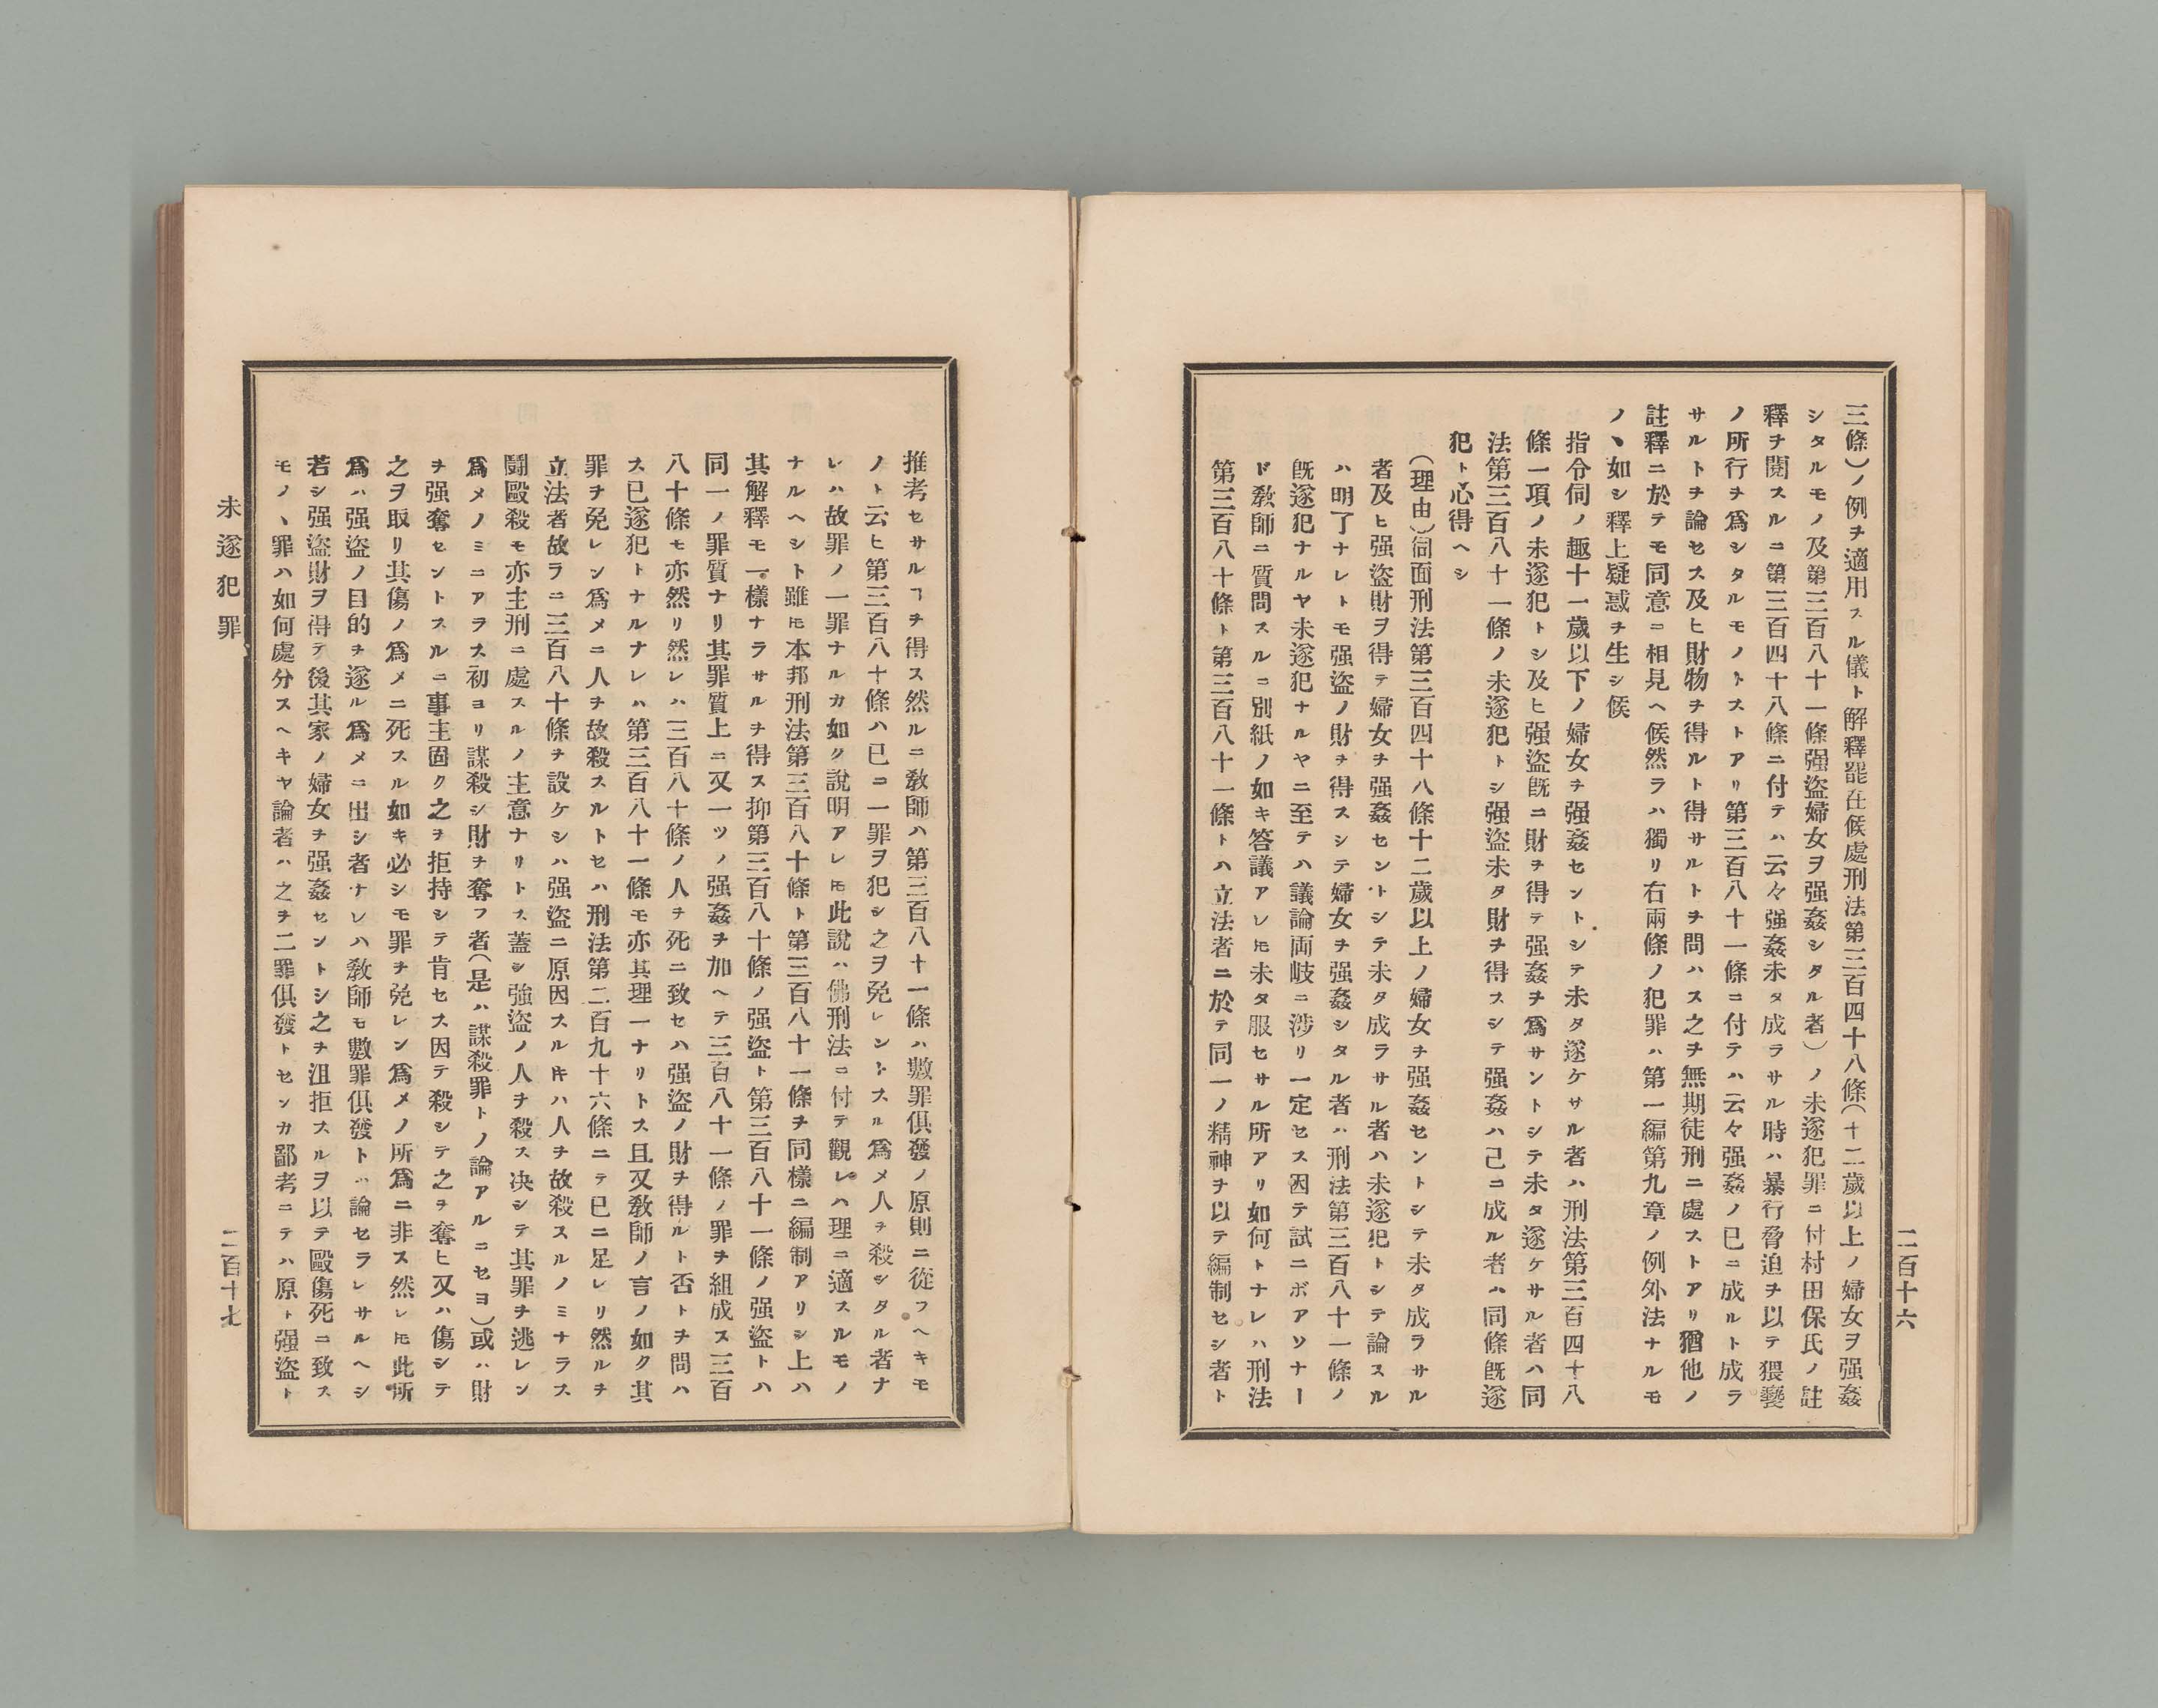 二百十六
三條)ノ例ヲ適用スル儀ト解釋罷在候處刑法第三百四十八條(十二歲以上ノ婦女ヲ强姦
シタルモノ及第三百八十一條强盜婦女ヲ强姦シタル者)ノ未遂犯罪ニ付村田保氏ノ註
釋ヲ閱スルニ第三百四十八條ニ付テハ云々强姦未タ成ラサル時ハ暴行脅迫ヲ以テ猥褻
ノ所行ヲ爲シタルモノトストアリ第三百八十一條ニ付テハ云々强姦ノ已ニ成ルト成ラ
サルトヲ論セス及ヒ財物ヲ得ルト得サルトヲ問ハス之ヲ無期徒刑ニ處ストアリ猶他ノ
註釋ニ於テモ同意ニ相見ヘ候然ラハ獨リ右兩條ノ犯罪ハ第一編第九章ノ例外法ナルモ
ノヽ如シ釋上疑惑ヲ生シ候
指令伺ノ趣十一歲以下ノ婦女ヲ强姦セントシテ未タ遂ケサル者ハ刑法第三百四十八
條一項ノ未遂犯トシ及ヒ强盜旣ニ財ヲ得テ强姦ヲ爲サントシテ未タ遂ケサル者ハ同
法第三百八十一條ノ未遂犯トシ强盜未タ財ヲ得スシテ强姦ハ己ニ成ル者ハ同條旣遂
犯ト心得ヘシ
(理由)伺面刑法第三百四十八條十二歲以上ノ婦女ヲ强姦セントシテ未タ成ラサル
者及ヒ强盜財ヲ得テ婦女ヲ强姦セントシテ未タ成ラサル者ハ未遂犯トシテ論スル
ハ明了ナレトモ强盜ノ財ヲ得スシテ婦女ヲ强姦シタル者ハ刑法第三百八十一條ノ
旣遂犯ナルヤ未遂犯ナルヤニ至テハ議論両岐ニ涉リ一定セス因テ試ニボアソナー
ド敎師ニ質問スルニ別紙ノ如キ答議アレ𪜈未タ服セサル所アリ如何トナレハ刑法
第三百八十條ト第三百八十一條トハ立法者ニ於テ同一ノ精神ヲ以テ編制セシ者ト
推考セサルヿヲ得ス然ルニ敎師ハ第三百八十一條ハ數罪俱發ノ原則ニ從フヘキモ
ノト云ヒ第三百八十條ハ已ニ一罪ヲ犯シ之ヲ免レントスル爲メ人ヲ殺シタル者ナ
レハ故罪ノ一罪ナルカ如ク說明アレ𪜈此說ハ佛刑法ニ付テ觀レハ理ニ適スルモノ
ナルヘシト雖𪜈本邦刑法第三百八十條ト第三百八十一條ヲ同樣ニ編制アリシ上ハ
其解釋モ一樣ナラサルヲ得ス抑第三百八十條ノ强盜ト第三百八十一條ノ强盜トハ
同一ノ罪質ナリ其罪質上ニ又一ツノ强姦ヲ加ヘテ三百八十一條ノ罪ヲ組成ス三百
八十條モ亦然リ然レハ三百八十條ノ人ヲ死ニ致セハ强盜ノ財ヲ得ルト否トヲ問ハ
ス已遂犯トナルナレハ第三百八十一條モ亦其理一ナリトス且又敎師ノ言ノ如ク其
罪ヲ免レン爲メニ人ヲ故殺スルトセハ刑法第二百九十六條ニテ已ニ足レリ然ルヲ
立法者故ラニ三百八十條ヲ設ケシハ强盜ニ原因スル𪜈ハ人ヲ故殺スルノミナラス
鬪毆殺モ亦主刑ニ處スルノ主意ナリトス蓋シ强盜ノ人ヲ殺ス決シテ其罪ヲ逃レン
爲メノミニアラス初ヨリ謀殺シ財ヲ奪フ者(是ハ謀殺罪トノ論アルニセヨ)或ハ財
ヲ强奪セントスルニ事主固ク之ヲ拒持シテ肯セス因テ殺シテ之ヲ奪ヒ又ハ傷シテ
之ヲ取リ其傷ノ爲メニ死スル如キ必シモ罪ヲ免レン爲メノ所爲ニ非ス然レ𪜈此所
爲ハ强盜ノ目的ヲ遂ル爲メニ出シ者ナレハ敎師モ數罪俱發トハ論セラレサルヘシ
若シ强盜財ヲ得テ後其家ノ婦女ヲ强姦セントシ之ヲ沮拒スルヲ以テ毆傷死ニ致ス
モノヽ罪ハ如何處分スヘキヤ論者ハ之ヲ二罪俱發トセンカ鄙考ニテハ原ト强盜ト
未遂犯罪
二百十七